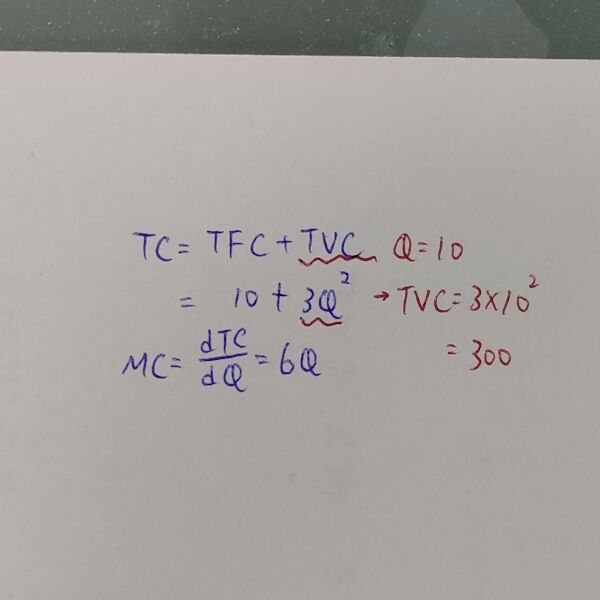 TC = TFC + TVC Q = 10
= 10 + 3Q² → TVC = 3×10²
MC = dTC/dQ = 6Q = 300